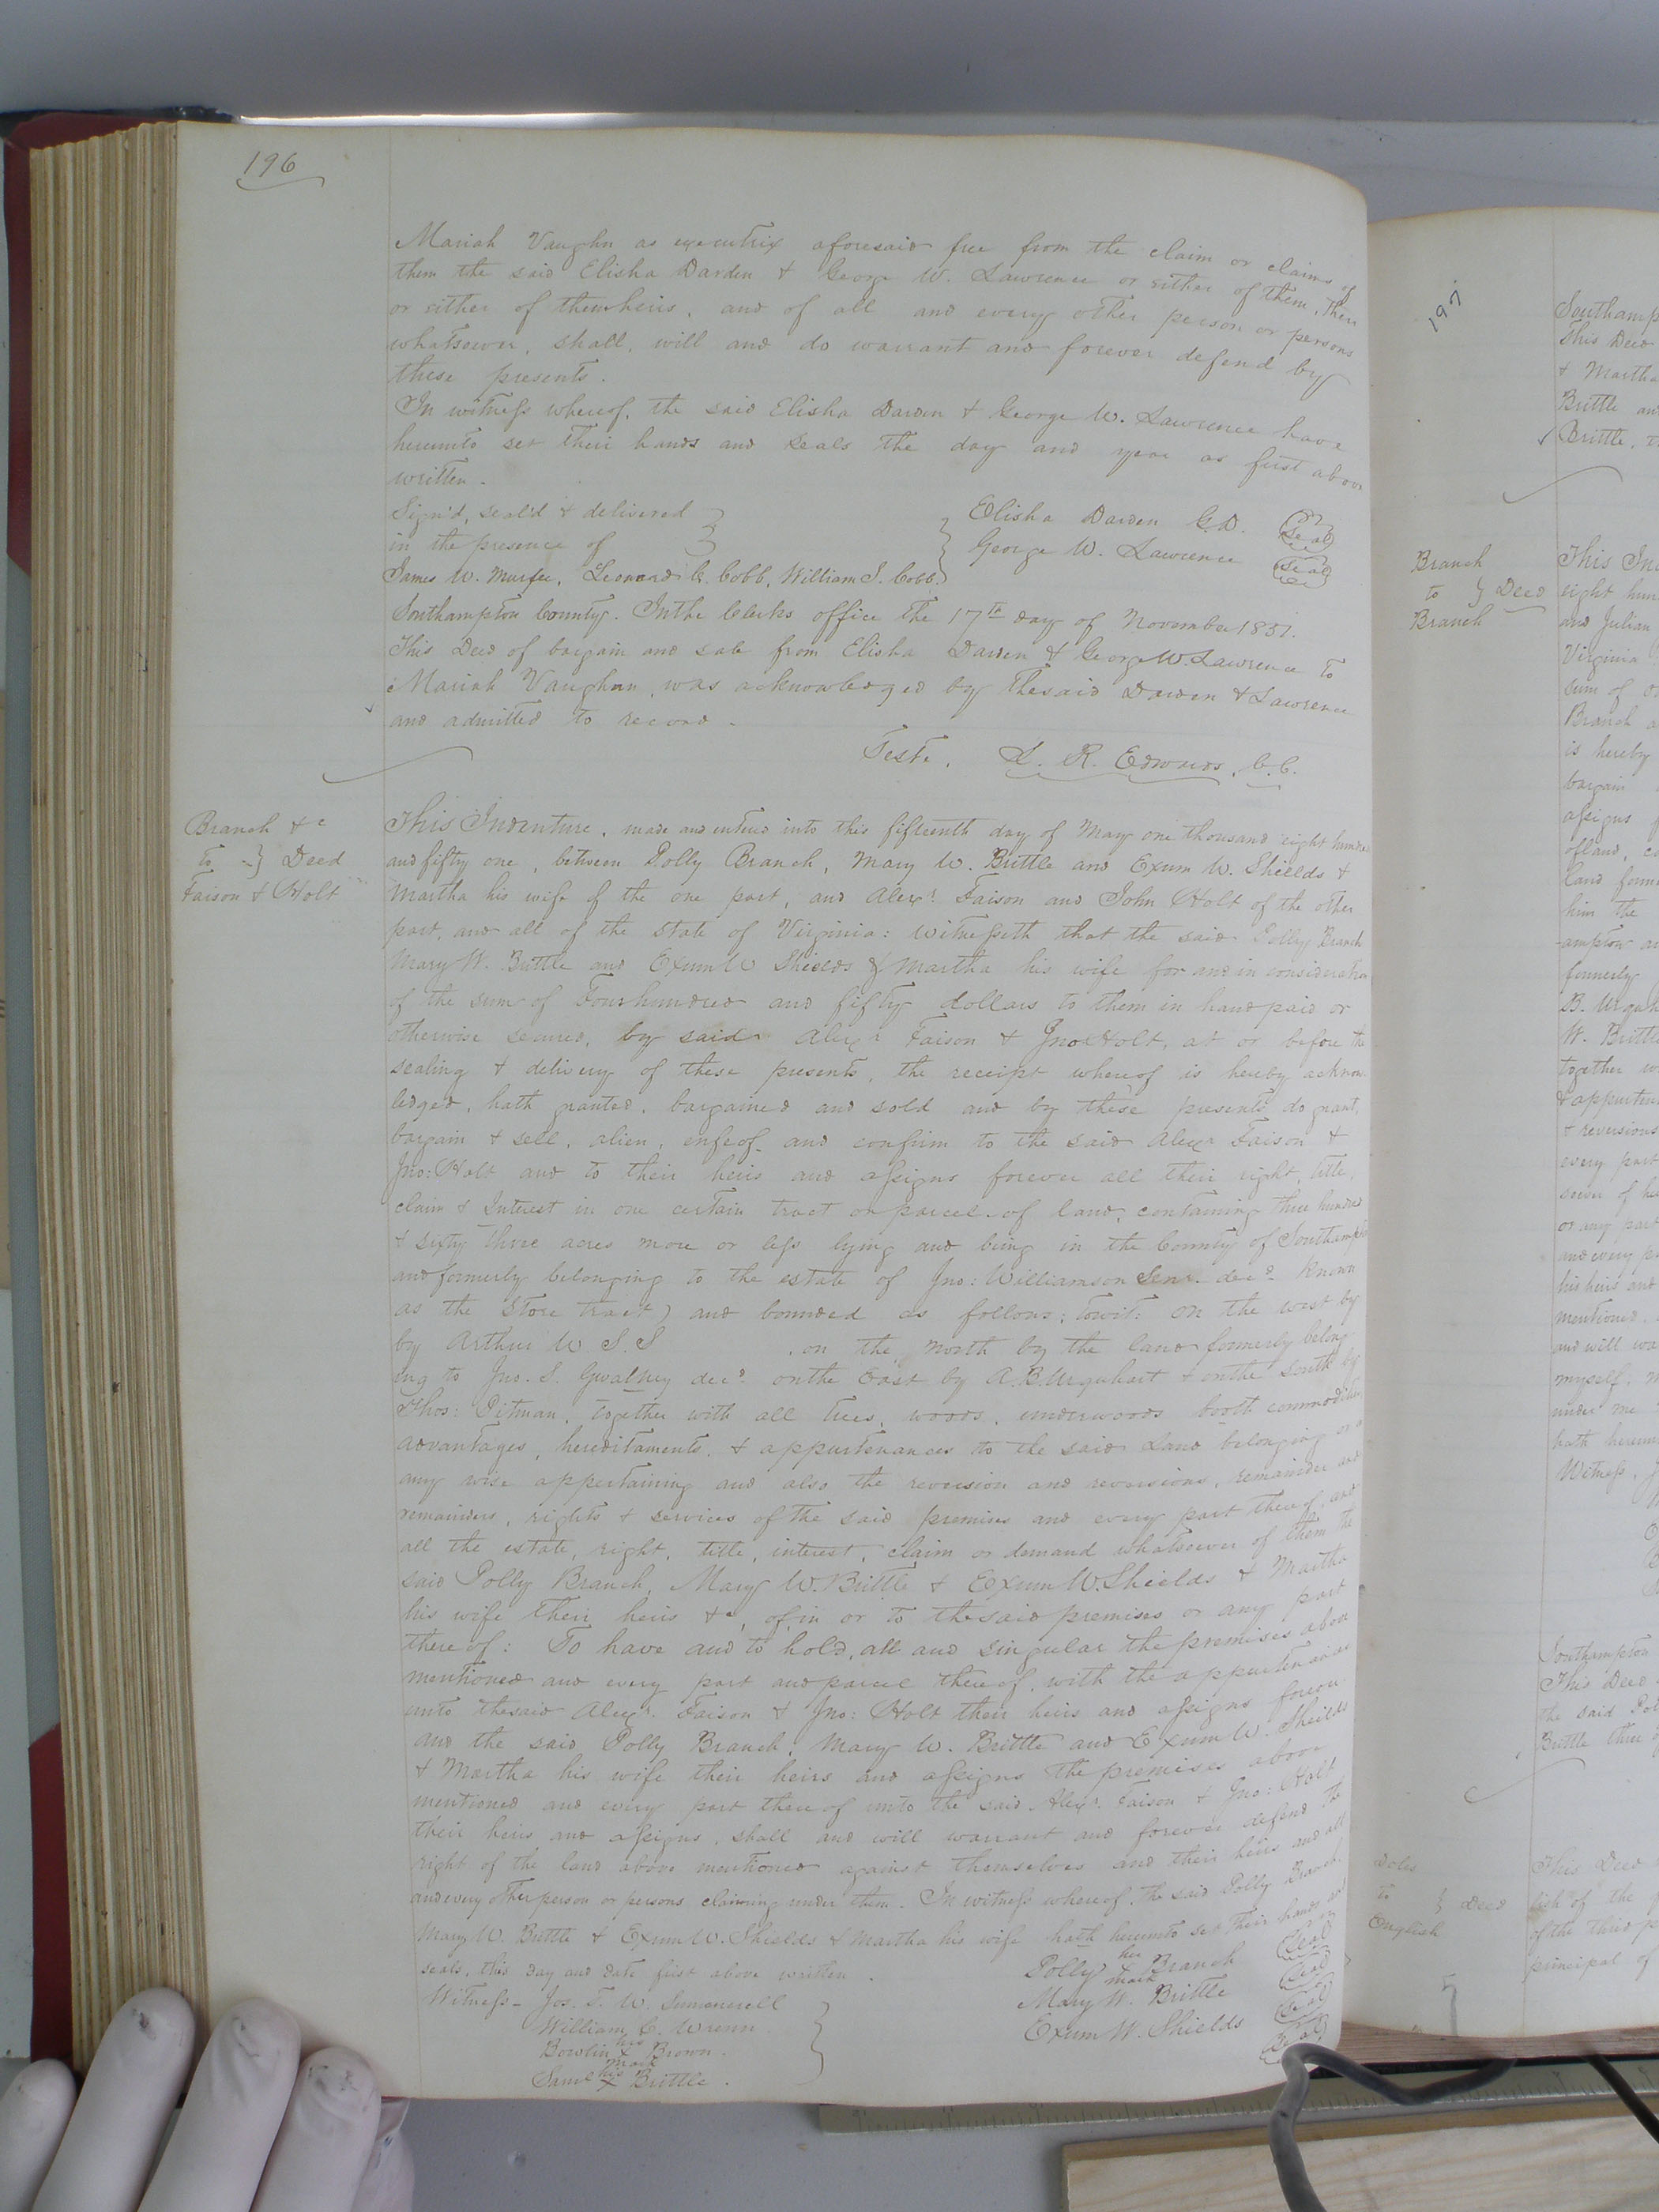 196
Mariah Vaughn as executrix aforesaid free from the claim or claims of
them the said Elisha Darden & George W. Lawrence or either of them, their
or either of their heirs, and of all and every other person or persons
whatsoever, shall, will and do warrant and forever defend by
these presents.
In witness whereof, the said Elisha Darden & George W. Lawrence have
hereunto set their hands and seals the day and year as first above
written.
Sign'd, seal'd & delivered
in the presence of
James W. Murfee, Leonard G. Cobb, William J. Cobb.
Elisha Darden G.D. Seal
George W. Lawrence Seal
Southampton County. In the Clerks office the 17th day of November 1851.
This Deed of bargain and sale from Elisha Darden & George W. Lawrence to
Mariah Vaughan, was acknowledged by the said Darden & Lawrence
and admitted to record.
Teste, L. R. Edwards, C.C.
Branch &c
to } Deed
Faison & Holt
This Indenture, made and entered into this fifteenth day of May one thousand eight hundred
and fifty one, between Polly Branch, Mary W. Brittle and Exum W. Shields &
Martha his wife of the one part, and Alexr. Faison and John Holt of the other
part, and all of the state of Virginia: Witnesseth that the said Polly Branch
Mary W. Brittle and Exum W Shields & Martha his wife for and in consideration
of the sum of Four hundred and fifty dollars to them in hand paid or
otherwise secured, by said Alexr Faison & Jno Holt, at or before the
sealing & delivery of these presents, the receipt whereof is hereby acknow
ledged, hath granted, bargained and sold and by these presents do grant,
bargain & sell, alien, enfeof and confirm to the said Alexr Faison &
Jno: Holt and to their heirs and assigns forever all their right, title,
claim & Interest in one certain tract or parcel of land, containing three hundred
& sixty three acres more or less lying and being in the County of Southampton
and formerly belonging to the estate of Jno: Williamson Senr. decd. Known
as the Store tract) and bounded as follows; towit: on the west by
by Arthur W S.S , on the North by the land formerly belong
ing to Jno. S. Gwaltney decd. on the East by A.B. Urquhart & on the South by
Thos: Pitman, together with all trees, woods, underwoods commodities
advantages, hereditaments, & appurtenances to the said Land belonging or in
any wise appertaining and also the reversion and reversions, remainder and
remainders, rights & services of the said premises and every part thereof, and
all the estate, right, title, interest, claim or demand whatsoever of them the
said Polly Branch, Mary W. Brittle & Exum W. Shields & Martha
his wife their heirs &c, of, in or to the said premises or any part
there of: To have and to hold, all and singular the premises above
mentioned and every part and parcel thereof, with the appurtenances
unto the said Alexr. Faison & Jno: Holt their heirs and assigns forever
and the said Polly Branch, Mary W. Brittle and Exum W. Sheilds
& Martha his wife their heirs and assigns the premises above
mentioned and every part there of unto the said Alexr. Faison & Jno: Holt
their heirs and assigns, shall and will warrant and forever defend the
right of the land above mentioned against themselves and their heirs and all
and every other person or persons claiming under them. In witness whereof, the said Polly Branch
Mary W. Brittle & Exum W. Shields & Martha his wife hath hereunto set their hands and
seals, this day and date first above written.
Witness - Jos. T. W. Summerell
William C. Wrenn
Bowlin his x mark Brown.
Saml his x Brittle.
Polly her x mark Branch Seal
Mary W. Brittle Seal
Exum W. Shields Seal
Seal
197
Southamp
This Deed
& Martha
Brittle and
Brittle, t
Branch
to } Deed
Branch
This Ind
eight hun
and Julian
Virginia
sum of
Branch a
is hereby
bargain
assigns
of land, co
land form
him the
ampton an
formerly
B. Urquh
W. Brittle
together w
& appurten
& reversions
every part
or any part
and every p
his heirs and
mentioned
and will wa
myself, m
under me
hath hereun
Witness, J
Southampton
This Deed
the said Pol
Brittle three
Doles
to } Deed
English
This Deed
lish of the
of the third p
principal of